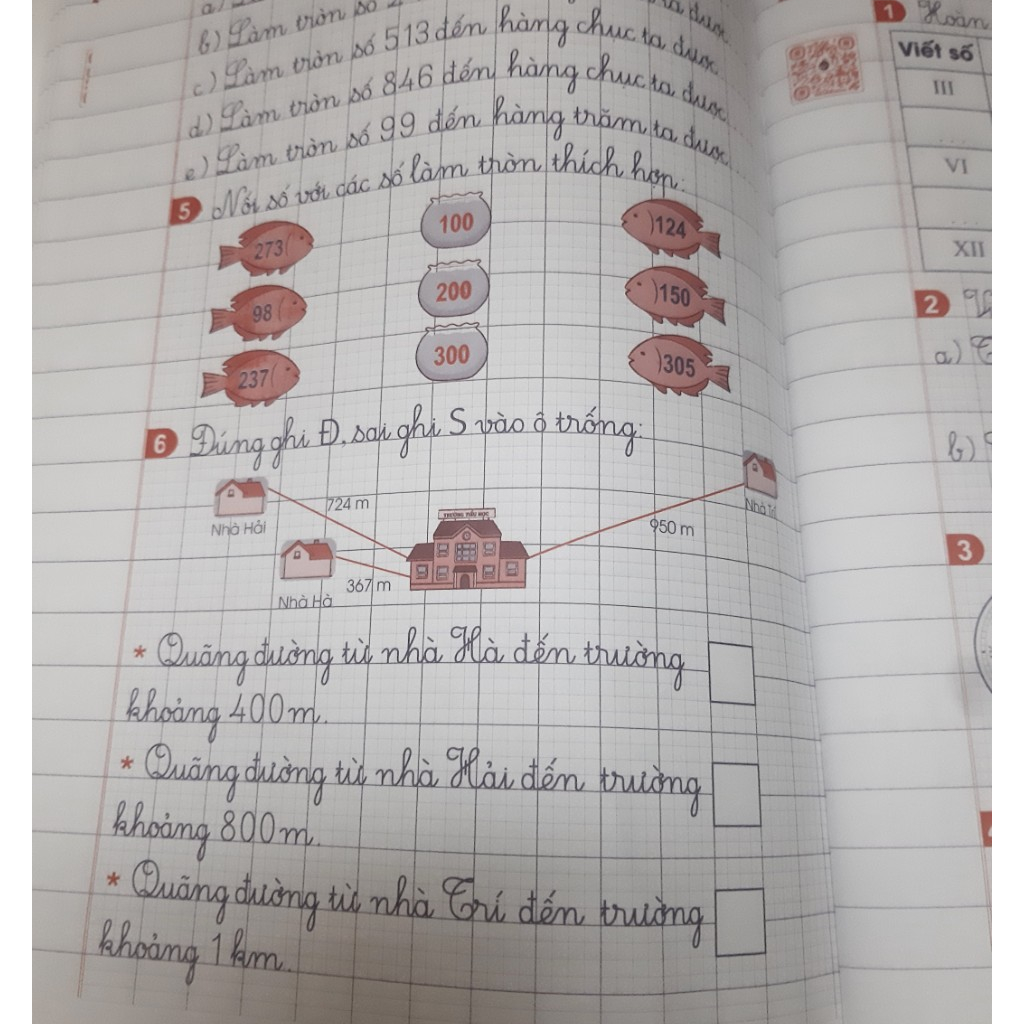 b) Làm tròn số
c) Làm tròn số 513 đến hàng chục ta được
d) Làm tròn số 846 đến hàng chục ta được
e) Làm tròn số 99 đến hàng trăm ta được
5 Nối số với các số làm tròn thích hợp:
273 100 124
98 200 150
237 300 305
6 Đúng ghi Đ, sai ghi S vào ô trống:
724 m
TRƯỜNG TIỂU HỌC
950 m
Nhà Hải
Nhà
367 m
Nhà Hà
* Quãng đường từ nhà Hà đến trường
khoảng 400m.
* Quãng đường từ nhà Hải đến trường
khoảng 800m.
* Quãng đường từ nhà Trí đến trường
khoảng 1km.
1 Hoàn
Viết số
III
VI
XII
2
a)
b)
3